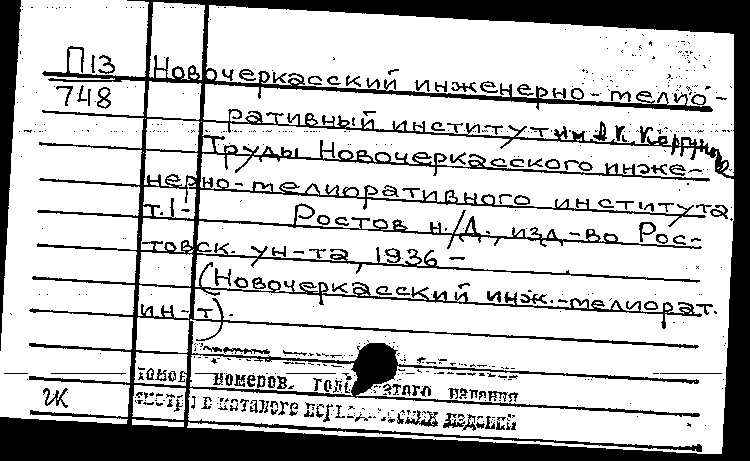 П13 Новочеркасский инженерно-мелио-
748
ративный институт им. А.К. Кортунова
Труды Новочеркасского инже-
нерно-мелиоративного института.
т.1- Ростов н./Д., изд-во Рос-
товск. ун-та, 1936-
(Новочеркасский инж.-мелиорат.
ин-т).
томов, номеров, год этого издания
смотри в каталоге периодических изданий
чк